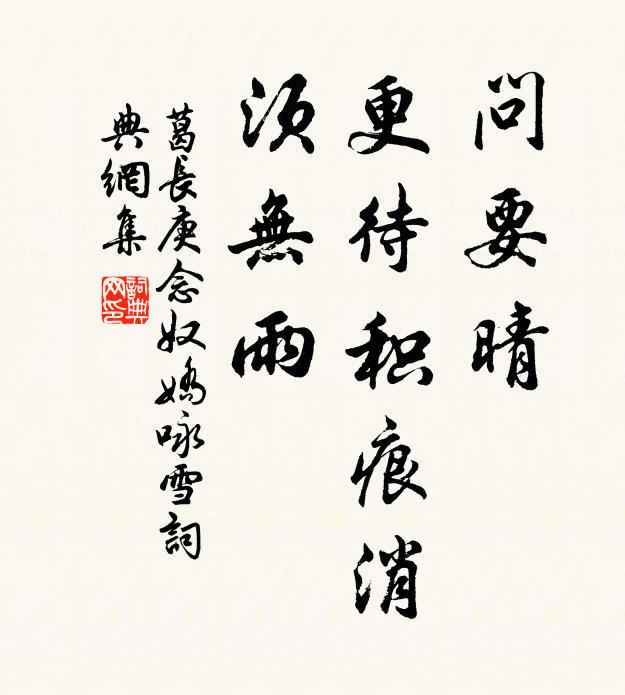 問要晴
更待积痕消
須無雨
葛長庚念奴嬌咏雪詞
典網集
詞典网印